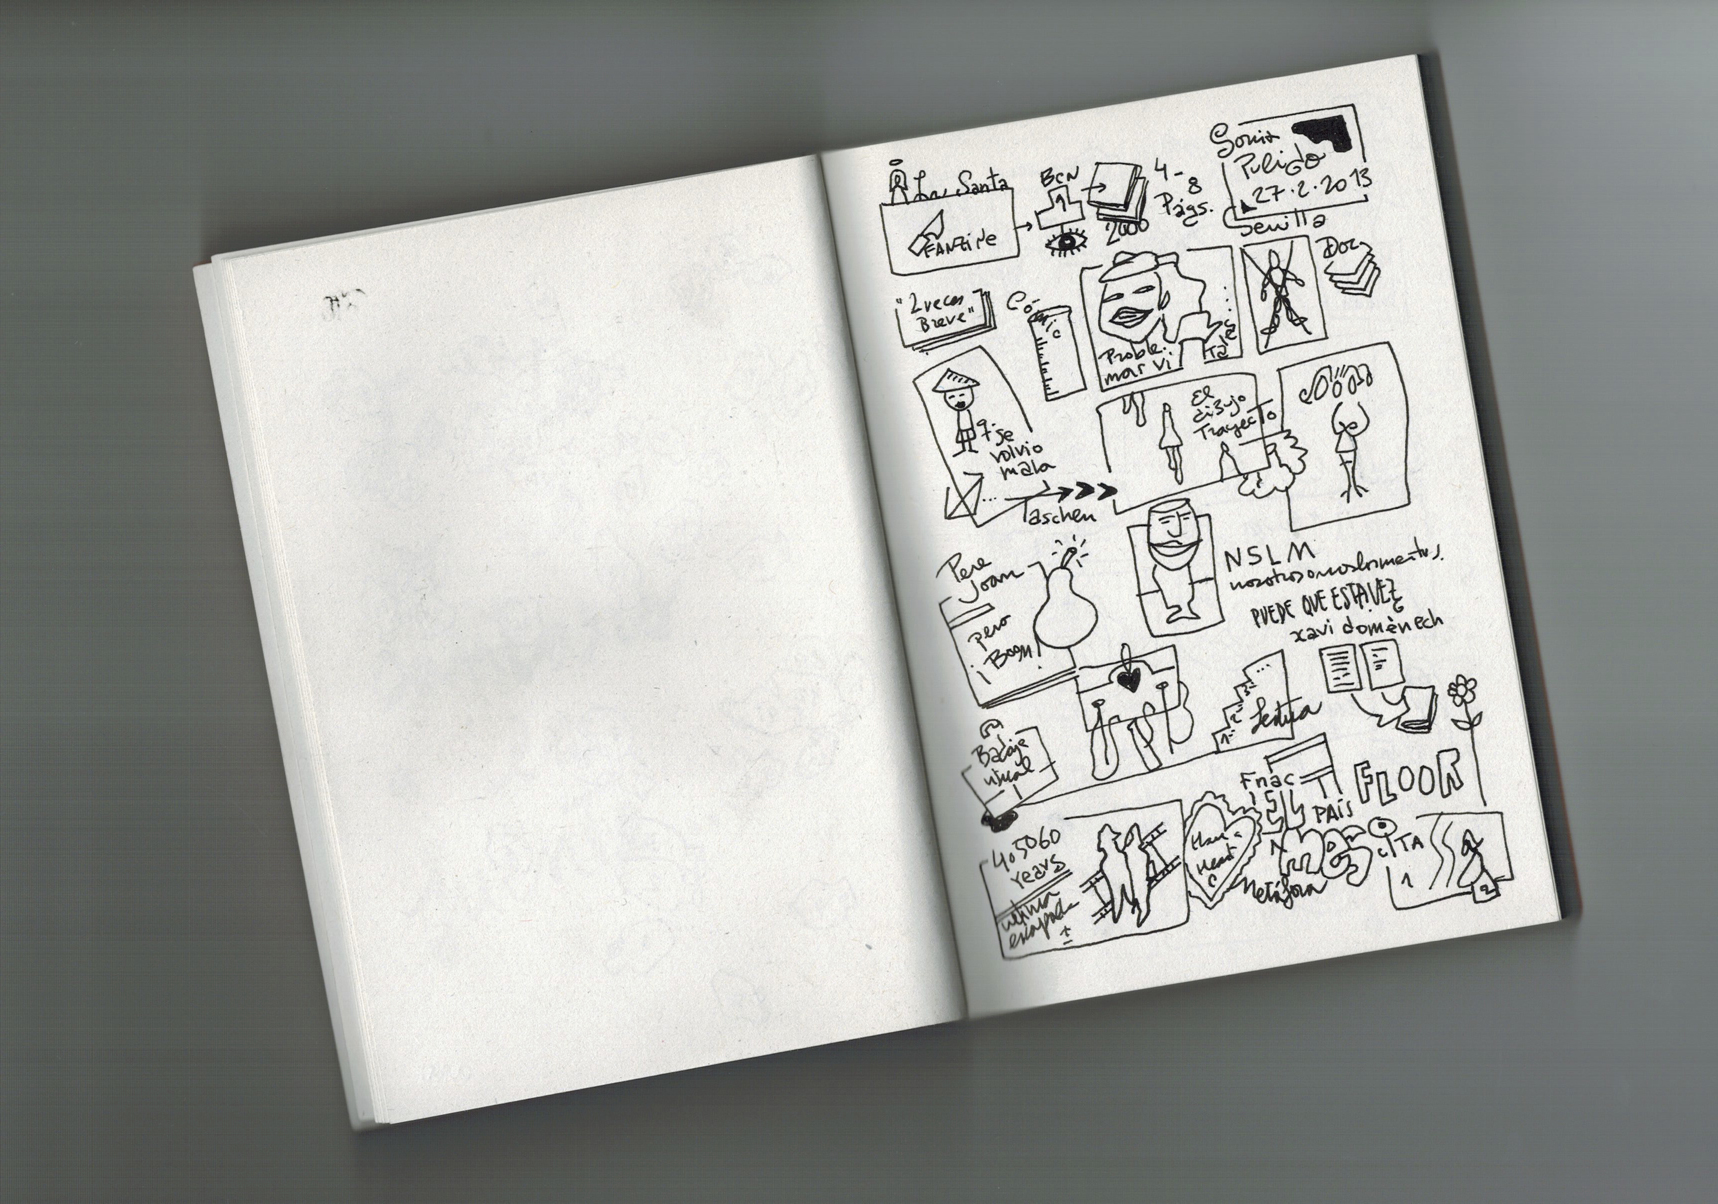 La Santa
FANZINE
BCN
2000
4-8
Págs.
Sonia
Pulido
27·2·2013
Sevilla
"2 veces
Breve"
Cómic
Proble-
mar vi
Tales
Doc
7-se
volvio
mala
Taschen
El
dibujo
Trayecto
Pere
Joan
pero
¡Boom!
NSLM
PUEDE QUE ESTA VEZ
xavi domènech
Badaje
visual
1-
2-
...
Lectura
Fnac
EL
PAÍS
FLOOR
405060
Years
última
escapada
±
Have a
Heart
Metáfora
CITA
1
2